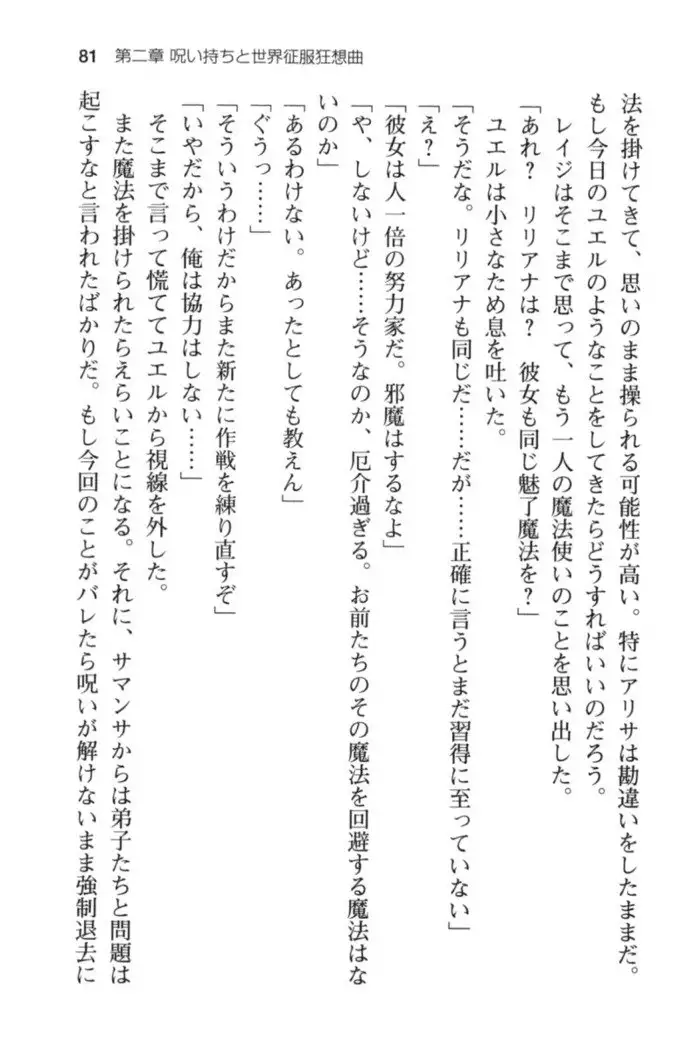 81 第二章 呪い持ちと世界征服狂想曲
法を掛けてきて、思いのまま操られる可能性が高い。特にアリサは勘違いをしたままだ。
もし今日のユエルのようなことをしてきたらどうすればいいのだろう。
レイジはそこまで思って、もう一人の魔法使いのことを思い出した。
「あれ？　リリアナは？　彼女も同じ魅了魔法を？」
ユエルは小さなため息を吐いた。
「そうだな。リリアナも同じだ……だが……正確に言うとまだ習得に至っていない」
「え？」
「彼女は人一倍の努力家だ。邪魔はするなよ」
「や、しないけど……そうなのか、厄介過ぎる。お前たちのその魔法を回避する魔法はな
いのか」
「あるわけない。あったとしても教えん」
「ぐうっ……」
「そういうわけだからまた新たに作戦を練り直すぞ」
「いやだから、俺は協力はしない……」
そこまで言って慌ててユエルから視線を外した。
また魔法を掛けられたらえらいことになる。それに、サマンサからは弟子たちと問題は
起こすなと言われたばかりだ。もし今回のことがバレたら呪いが解けないまま強制退去に